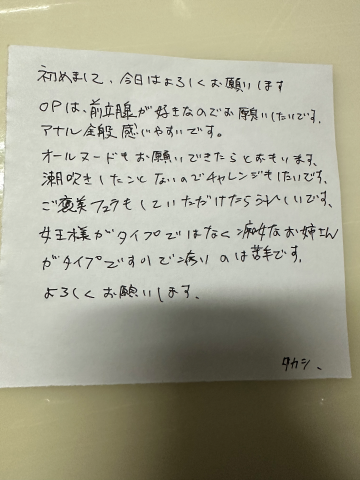 初めまして、今日はよろしくお願いします
OPは、前立腺が好きなのでお願いしたいです。
アナル全般感じやすいです。
オールヌードもお願いできたらとおもいます、
潮吹きしたことないのでチャレンジもしたいです、
ご褒美フェラもしていただけたらうれしいです、
女王様がタイプではなく痴女なお姉さん
がタイプですので痛いのは苦手です。
よろしくお願いします、
タカシ、